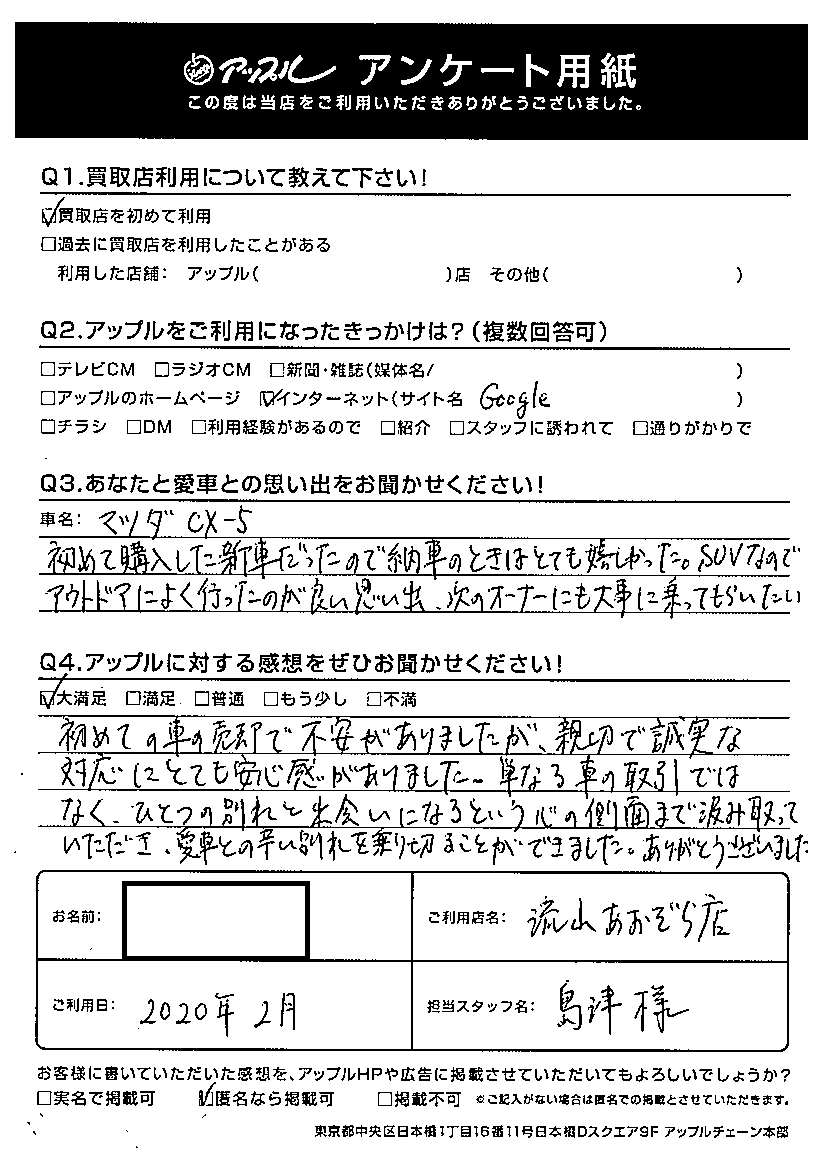 アップル アンケート用紙
この度は当店をご利用いただきありがとうございました。
Q1.買取店利用について教えて下さい!
☑買取店を初めて利用
□過去に買取店を利用したことがある
利用した店舗: アップル( )店 その他( )
Q2.アップルをご利用になったきっかけは?(複数回答可)
□テレビCM □ラジオCM □新聞・雑誌(媒体名/ )
□アップルのホームページ ☑インターネット(サイト名 Google )
□チラシ □DM □利用経験があるので □紹介 □スタッフに誘われて □通りがかりで
Q3.あなたと愛車との思い出をお聞かせください!
車名: マツダ CX-5
初めて購入した新車だったので納車のときはとても嬉しかった。SUVなので
アウトドアによく行ったのが良い思い出、次のオーナーにも大事に乗ってもらいたい
Q4.アップルに対する感想をぜひお聞かせください!
☑大満足 □満足 □普通 □もう少し □不満
初めての車の売却で不安がありましたが、親切で誠実な
対応にとても安心感がありました。単なる車の取引では
なく、ひとつの別れと出会いになるという心の側面まで汲み取って
いただき、愛車との辛い別れを乗り切ることができました。ありがとうございました
お名前:
ご利用店名: 流山あおぞら店
ご利用日: 2020年2月
担当スタッフ名: 島津 様
お客様に書いていただいた感想を、アップルHPや広告に掲載させていただいてもよろしいでしょうか?
□実名で掲載可 ☑匿名なら掲載可 □掲載不可 ※ご記入がない場合は匿名での掲載とさせていただきます。
東京都中央区日本橋1丁目16番11号日本橋Dスクエア9F アップルチェーン本部